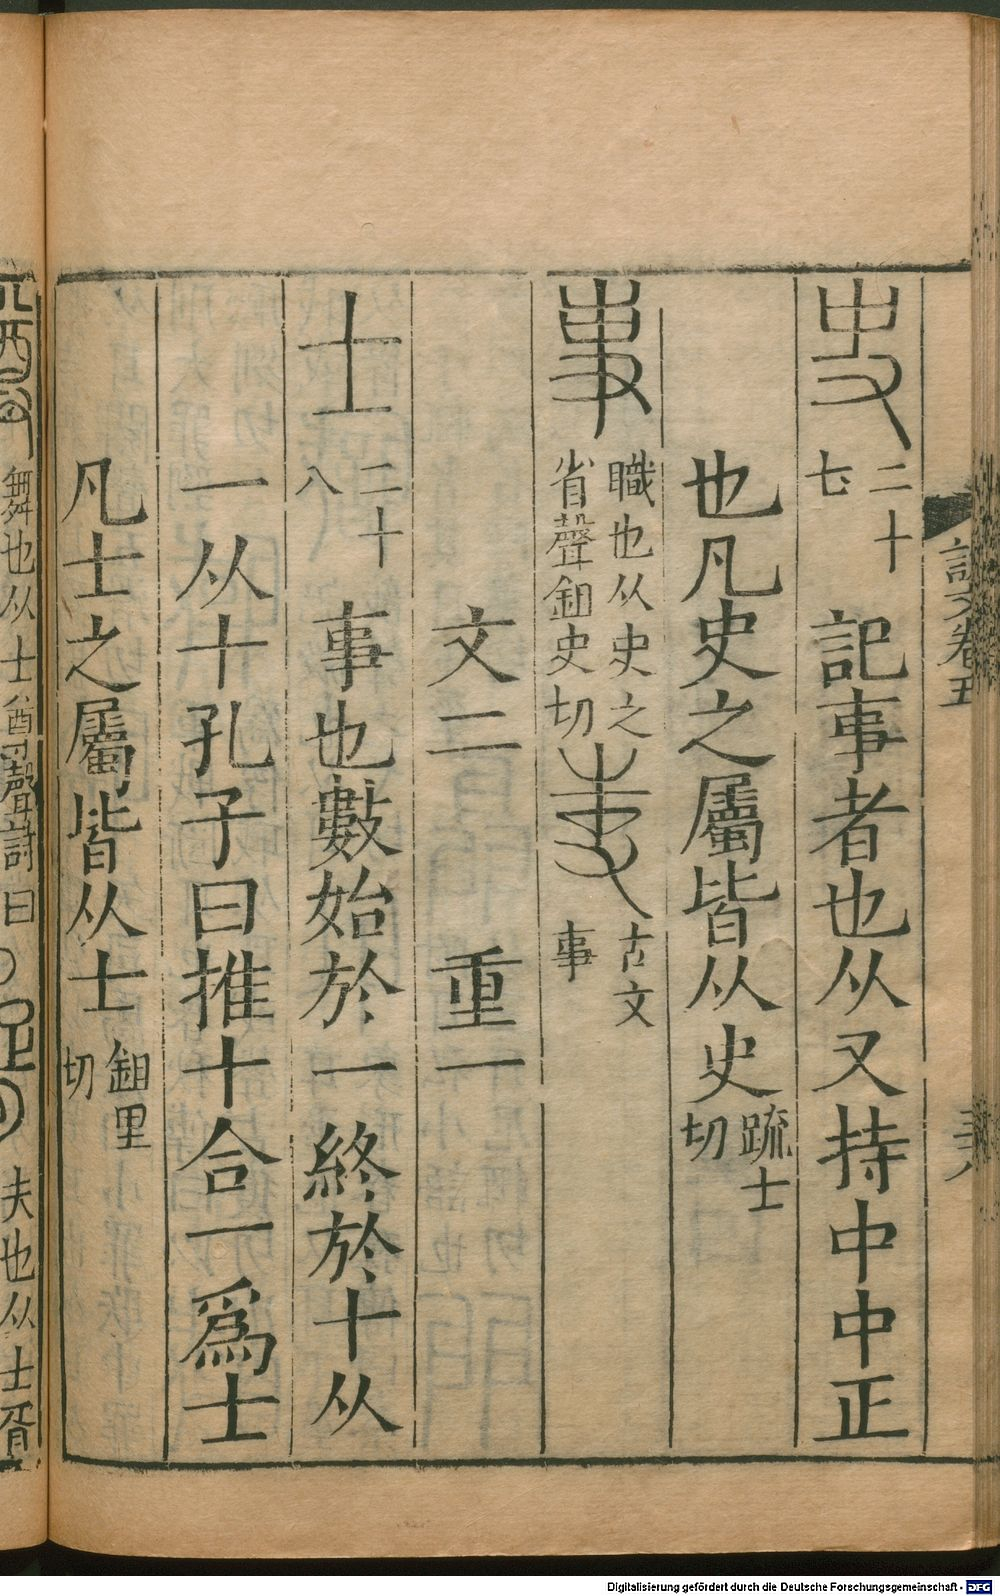 說文卷五
史 二十七 記事者也从又持中中正
也凡史之屬皆从史 疏士切
事 職也从史之省聲鉏史切 𠭏 古文事
文二 重一
士 二十八 事也數始於一終於十从
一从十孔子曰推十合一爲士
凡士之屬皆从士 鉏里切
舞也从士
聲詩曰
夫也从士胥
Digitalisierung gefördert durch die Deutsche Forschungsgemeinschaft - DFG